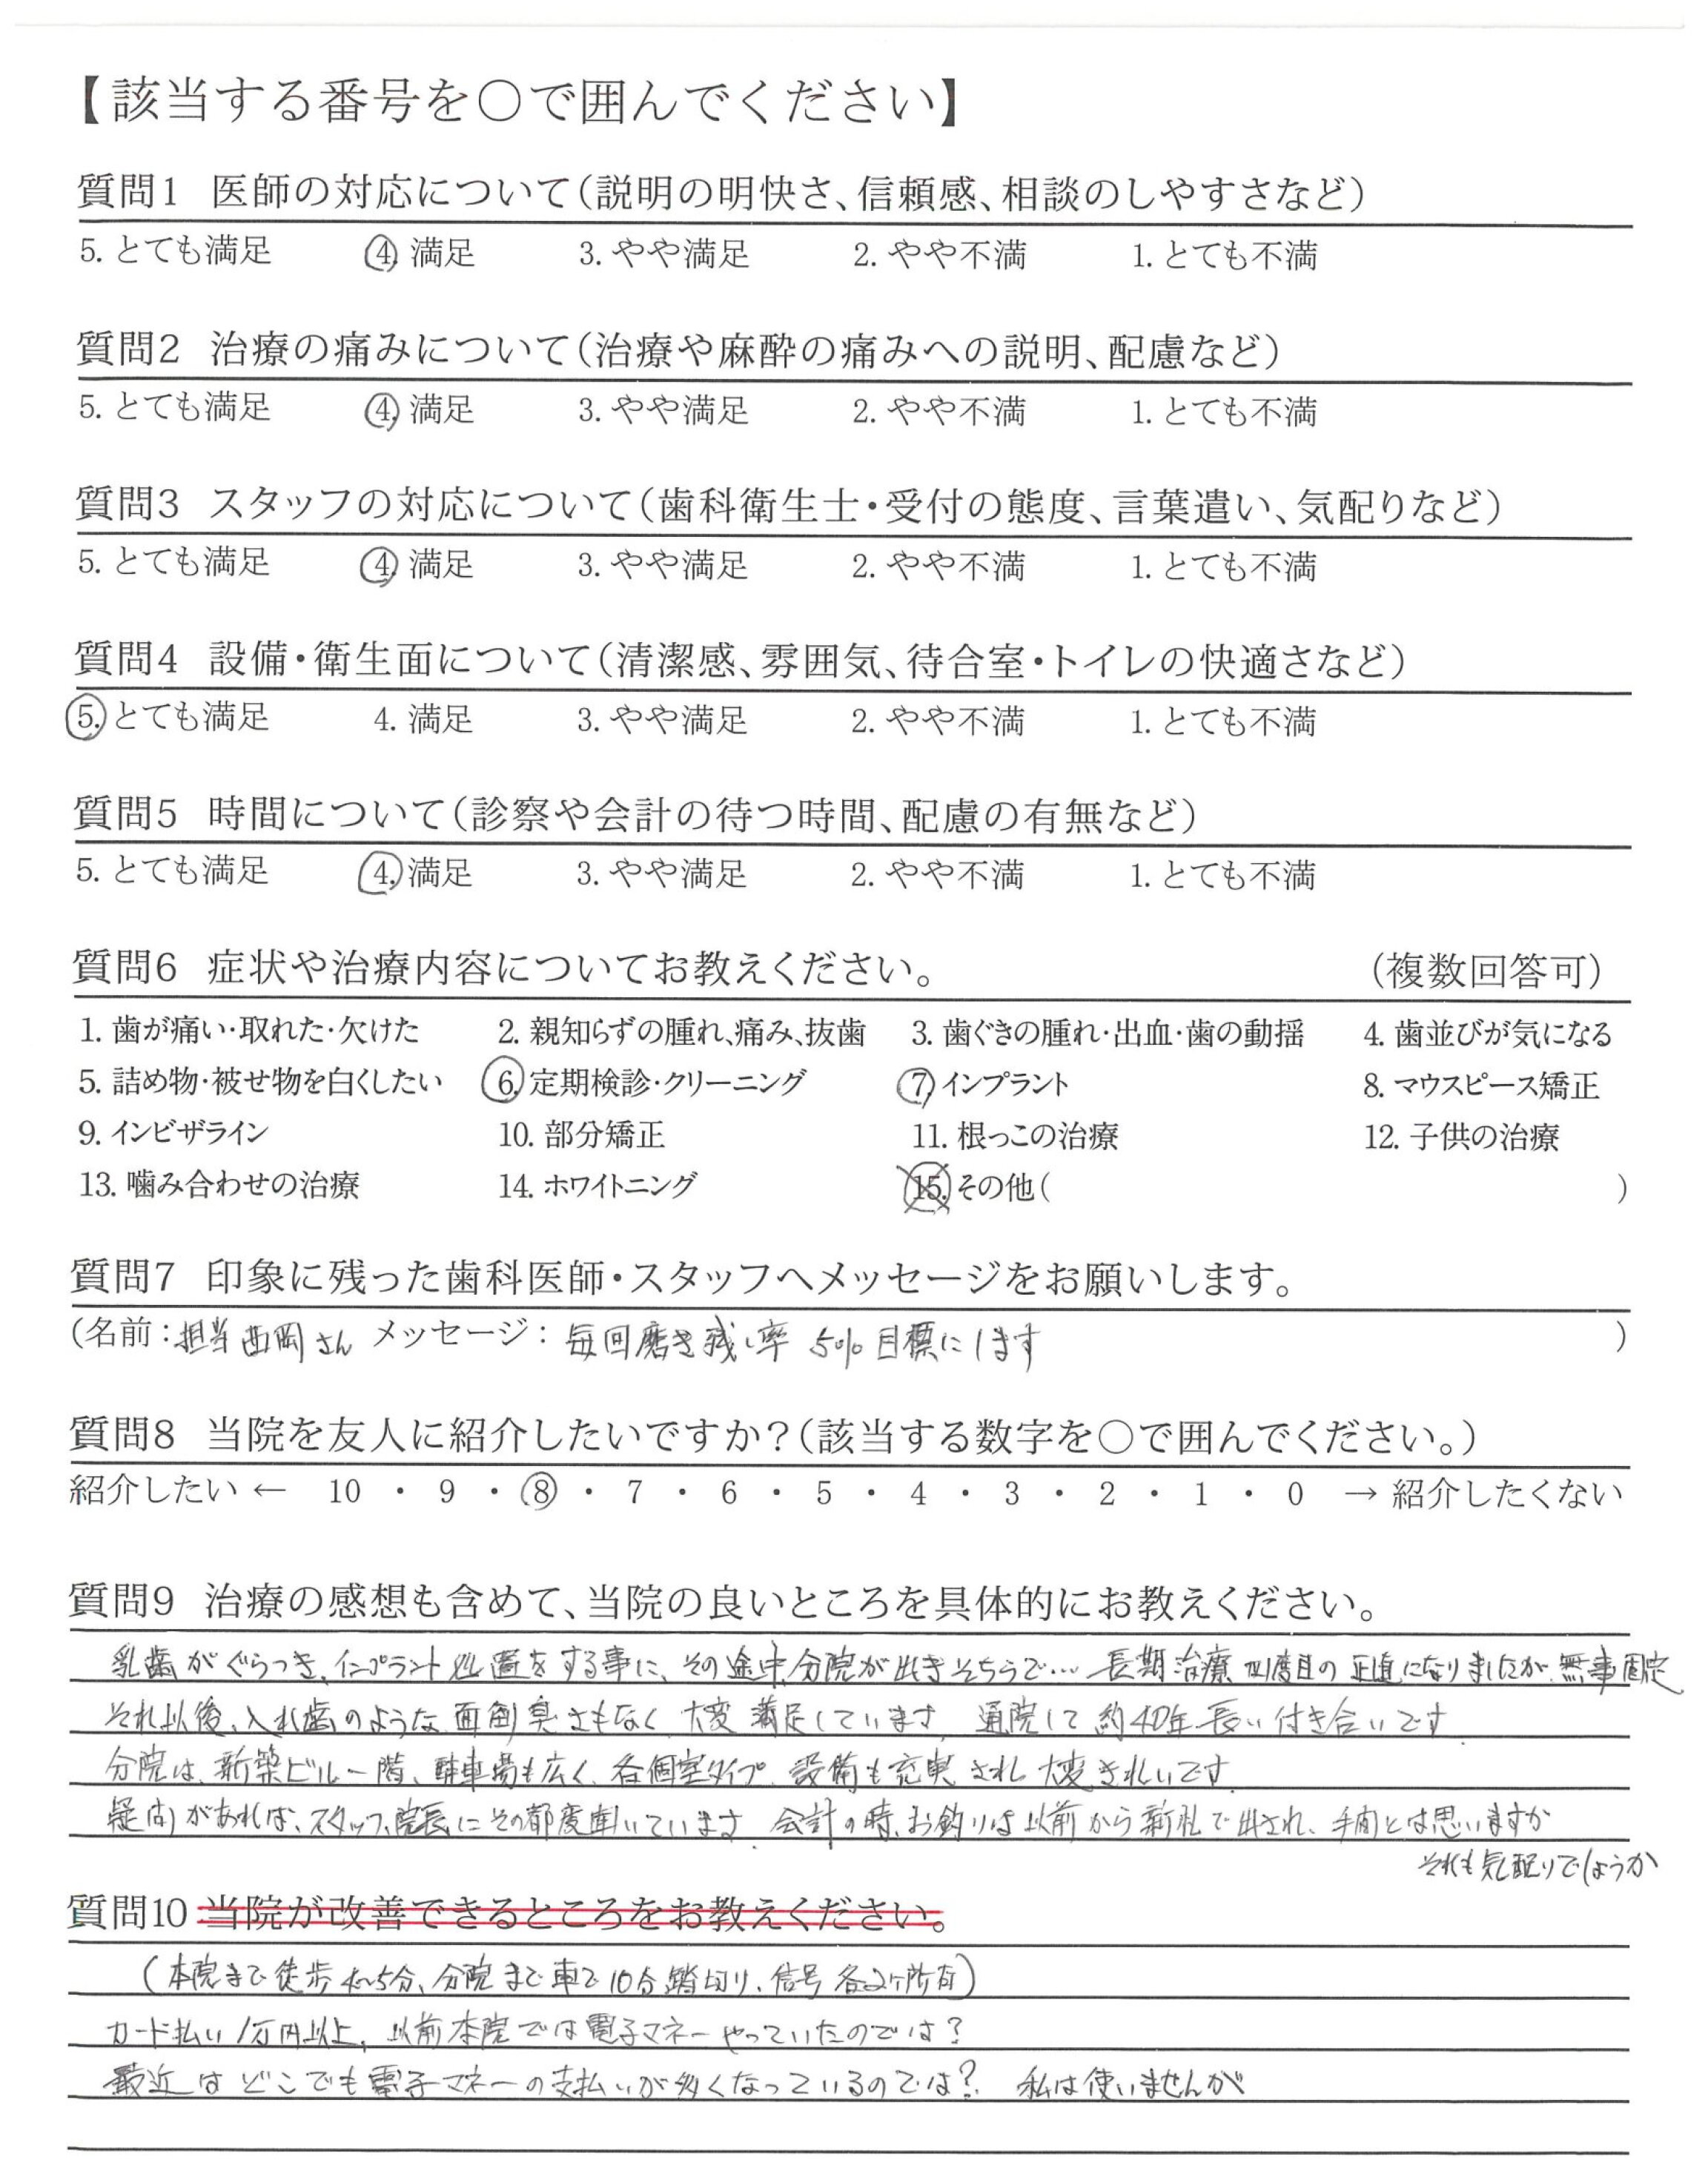 【該当する番号を〇で囲んでください】
質問1 医師の対応について（説明の明快さ、信頼感、相談のしやすさなど）
5. とても満足 4. 満足 3. やや満足 2. やや不満 1. とても不満
質問2 治療の痛みについて（治療や麻酔の痛みへの説明、配慮など）
5. とても満足 4. 満足 3. やや満足 2. やや不満 1. とても不満
質問3 スタッフの対応について（歯科衛生士・受付の態度、言葉遣い、気配りなど）
5. とても満足 4. 満足 3. やや満足 2. やや不満 1. とても不満
質問4 設備・衛生面について（清潔感、雰囲気、待合室・トイレの快適さなど）
5. とても満足 4. 満足 3. やや満足 2. やや不満 1. とても不満
質問5 時間について（診察や会計の待つ時間、配慮の有無など）
5. とても満足 4. 満足 3. やや満足 2. やや不満 1. とても不満
質問6 症状や治療内容についてお教えください。 （複数回答可）
1. 歯が痛い・取れた・欠けた 2. 親知らずの腫れ、痛み、抜歯 3. 歯ぐきの腫れ・出血・歯の動揺 4. 歯並びが気になる
5. 詰め物・被せ物を白くしたい 6. 定期検診・クリーニング 7. インプラント 8. マウスピース矯正
9. インビザライン 10. 部分矯正 11. 根っこの治療 12. 子供の治療
13. 噛み合わせの治療 14. ホワイトニング 15. その他（ ）
質問7 印象に残った歯科医師・スタッフへメッセージをお願いします。
（名前：担当西岡さん メッセージ：毎回磨き残し率 5%目標にします ）
質問8 当院を友人に紹介したいですか？（該当する数字を〇で囲んでください。）
紹介したい ← 10 ・ 9 ・ 8 ・ 7 ・ 6 ・ 5 ・ 4 ・ 3 ・ 2 ・ 1 ・ 0 → 紹介したくない
質問9 治療の感想も含めて、当院の良いところを具体的にお教えください。
乳歯がぐらつき、インプラント処置をする事に、その途中、分院が出きそちらで… 長期治療 度目の になりましたが、無事固定
それ以後、入れ歯のような面倒臭さもなく 大変満足しています 通院して約40年 長い付き合いです
分院は、新築ビル一階、駐車場も広く、各個室タイプ、設備も充実され大変きれいです
疑問があれば、スタッフ、院長にその都度聞いています。会計の時、お釣りは以前から新札で出され、手間とは思いますが
それも気配りでしょうか
質問10 当院が改善できるところをお教えください。
（本院まで徒歩4〜5分、分院まで車で10分 踏切り、信号 各2ヶ所有）
カード払い1万円以上、以前本院では電子マネーやっていたのでは？
最近はどこでも電子マネーの支払いが多くなっているのでは？ 私は使いませんが